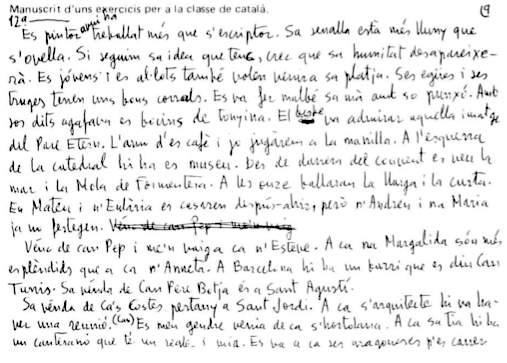 Manuscrit d'uns exercicis per a la classe de català.
12ª
Es pintor avui ha treballat més que s'escriptor. Sa senalla està més lluny que
s'ovella. Si seguim sa idea que tens, crec que sa humitat desapareixe-
rà. Es jóvens i es al·lots també volen veure sa platja. Ses egües i ses
truges tenen uns bons corrals. Es va fer malbé sa mà amb so punxó. Amb
sos dits agafava es bocins de tonyina. El bisbe va admirar aquella imatge
del Pare Etern. L'amo d'es cafè i jo jugàrem a la manilla. A l'esquerra
de la catedral hi ha es museu. Des de darrera del convent es veu la
mar i la Mola de Formentera. A les onze ballaran la llarga i la curta.
En Mateu i n'Eulària es casaren despús-ahir, però n'Andreu i na Maria
ja no festegen. Vénc de can Pep i me'n vaig
Vénc de can Pep i me'n vaig a ca n'Esteve. A ca na Margalida són més
esplèndids que a ca n'Anneta. A Barcelona hi ha un barri que es diu Can
Tunis. Sa vénda de Can Pere Botja és a Sant Agustí.
Sa vénda de Ca's Costes pertany a Sant Jordi. A ca s'arquitecte hi va ha-
ver una reunió. (Can) Es meu gendre venia de ca s'hortolana. A ca sa tia hi ha
un canterano que té un